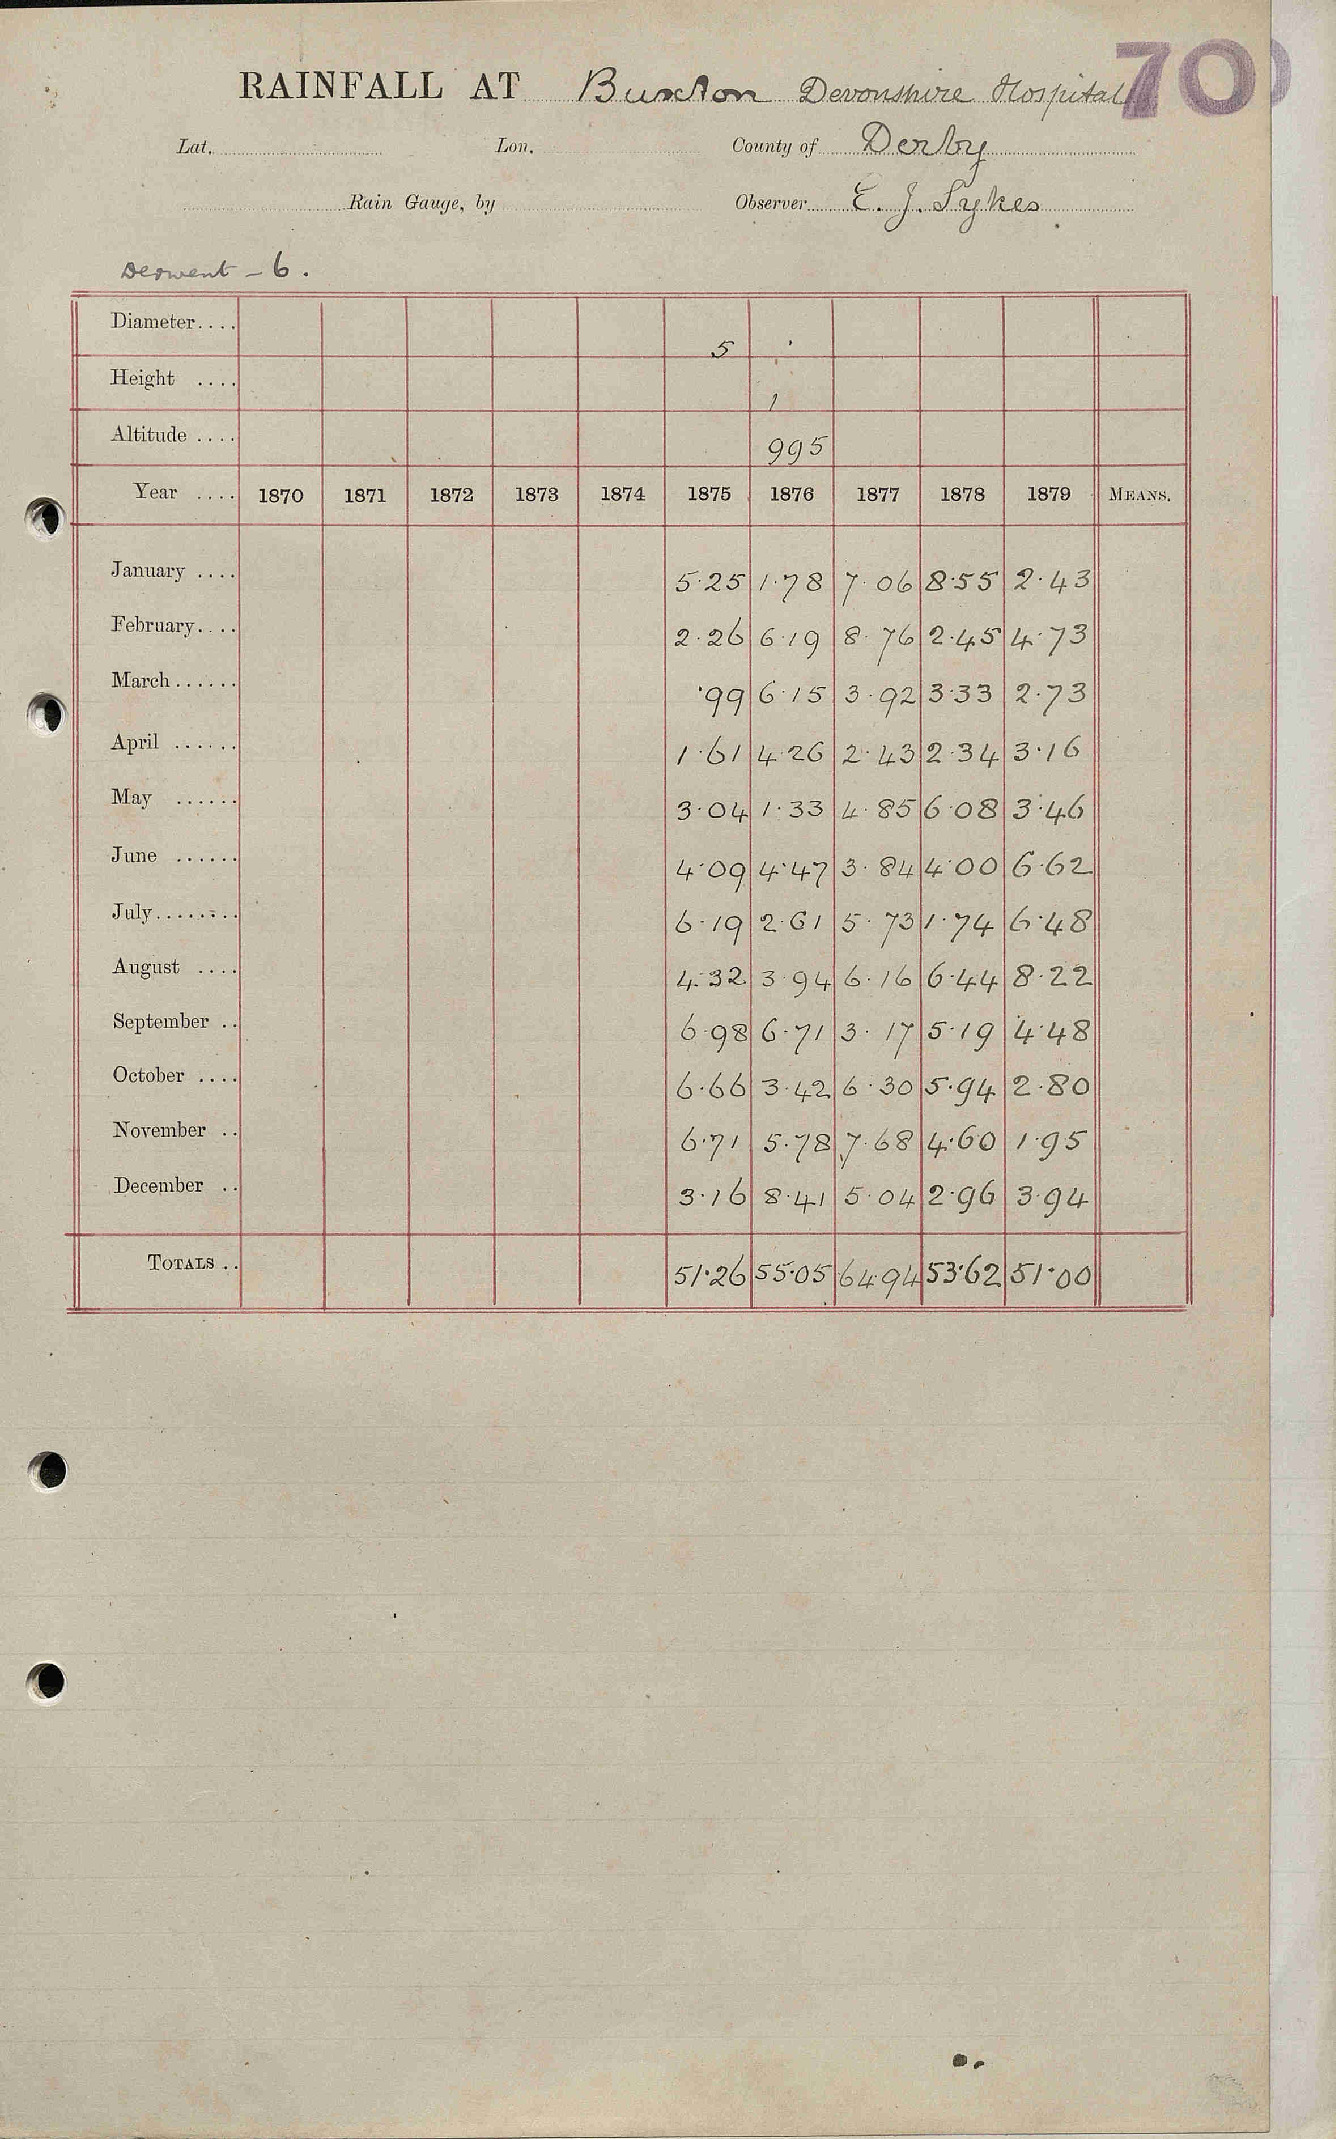 70
RAINFALL AT Buxton Devonshire Hospital
Lat. Lon. County of Derby
Rain Gauge, by Observer E. J. Sykes
Derwent - 6.
Diameter.... 5
Height .... 1
Altitude .... 995
Year .... 1870 1871 1872 1873 1874 1875 1876 1877 1878 1879 MEANS.
January .... 5.25 1.78 7.06 8.55 2.43
February.... 2.26 6.19 8.76 2.45 4.73
March...... .99 6.15 3.92 3.33 2.73
April ...... 1.61 4.26 2.43 2.34 3.16
May ...... 3.04 1.33 4.85 6.08 3.46
June ...... 4.09 4.47 3.84 4.00 6.62
July........ 6.19 2.61 5.73 1.74 6.48
August .... 4.32 3.94 6.16 6.44 8.22
September .. 6.98 6.71 3.17 5.19 4.48
October .... 6.66 3.42 6.30 5.94 2.80
November .. 6.71 5.78 7.68 4.60 1.95
December .. 3.16 8.41 5.04 2.96 3.94
TOTALS .. 51.26 55.05 64.94 53.62 51.00